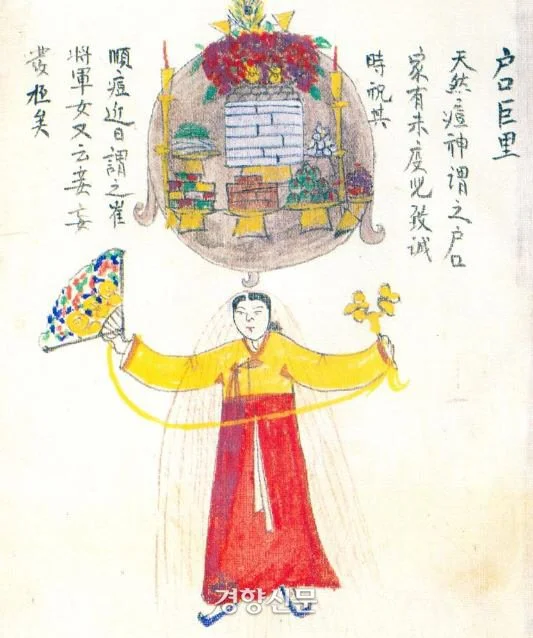 户口巨里
天然痘神謂之户口
家有未度児致誠
時祝其
順痘近日謂之崔
將軍女又云妾妄
發極矣
경향신문